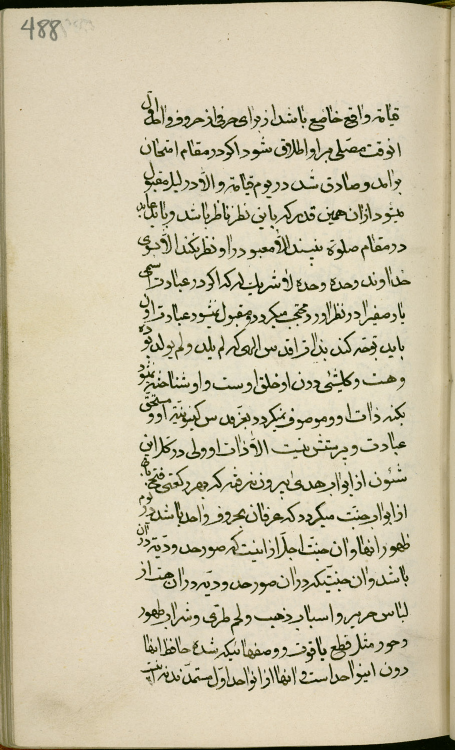 488
قیامة واقع خاضع باشد از برای حرفی از حروف واحد اول
انوقت مصلی بر او اطلاق شود اکر در مقام امتحان
بر آمد و صادق شد در یوم قیامة و الا در لیل مقبول
میشود از ان همین قدر که باین نظر ناظر باشد و باید عابد
در مقام صلوة نبیند الا معبود را و نظر نکند الا بسوی
خداوند وحده وحده لا شریک له که اکر در عبادت اسمی
یا وصفی را در نظر اورد محتجب میکردد و مقبول نمیشود عبادت او
باید توجه کند بذات اقدس الهی که لم یلد و لم یولد بوده
و هست و کلشیء دون او خلق اوست و او شناخته نمیشود
بکنه ذات او و موصوف نمیکردد بغیر نفس کینونیته او و مستحق
عبادت و پرستش نیست الا ذات او ولی در کل این
شئون از ابواب هدی بیرون نرفته که بهر رکعتی فتح بابی
از ابواب جنت میکردد که عرفان بحروف واحد باشد در یوم
ظهور انها و ان جنت اجل از اینست که صور حدودیه در ان
باشد و ان جنتیکه در ان صور حدودیه در ان هست از
لباس حریر و اسباب ذهب و لحم طری و شراب طهور
و حور مثل قطع یاقوت و وصفهائیکه شده حافظ انها
دون این واحد است و انها از انواحد اول مستمد